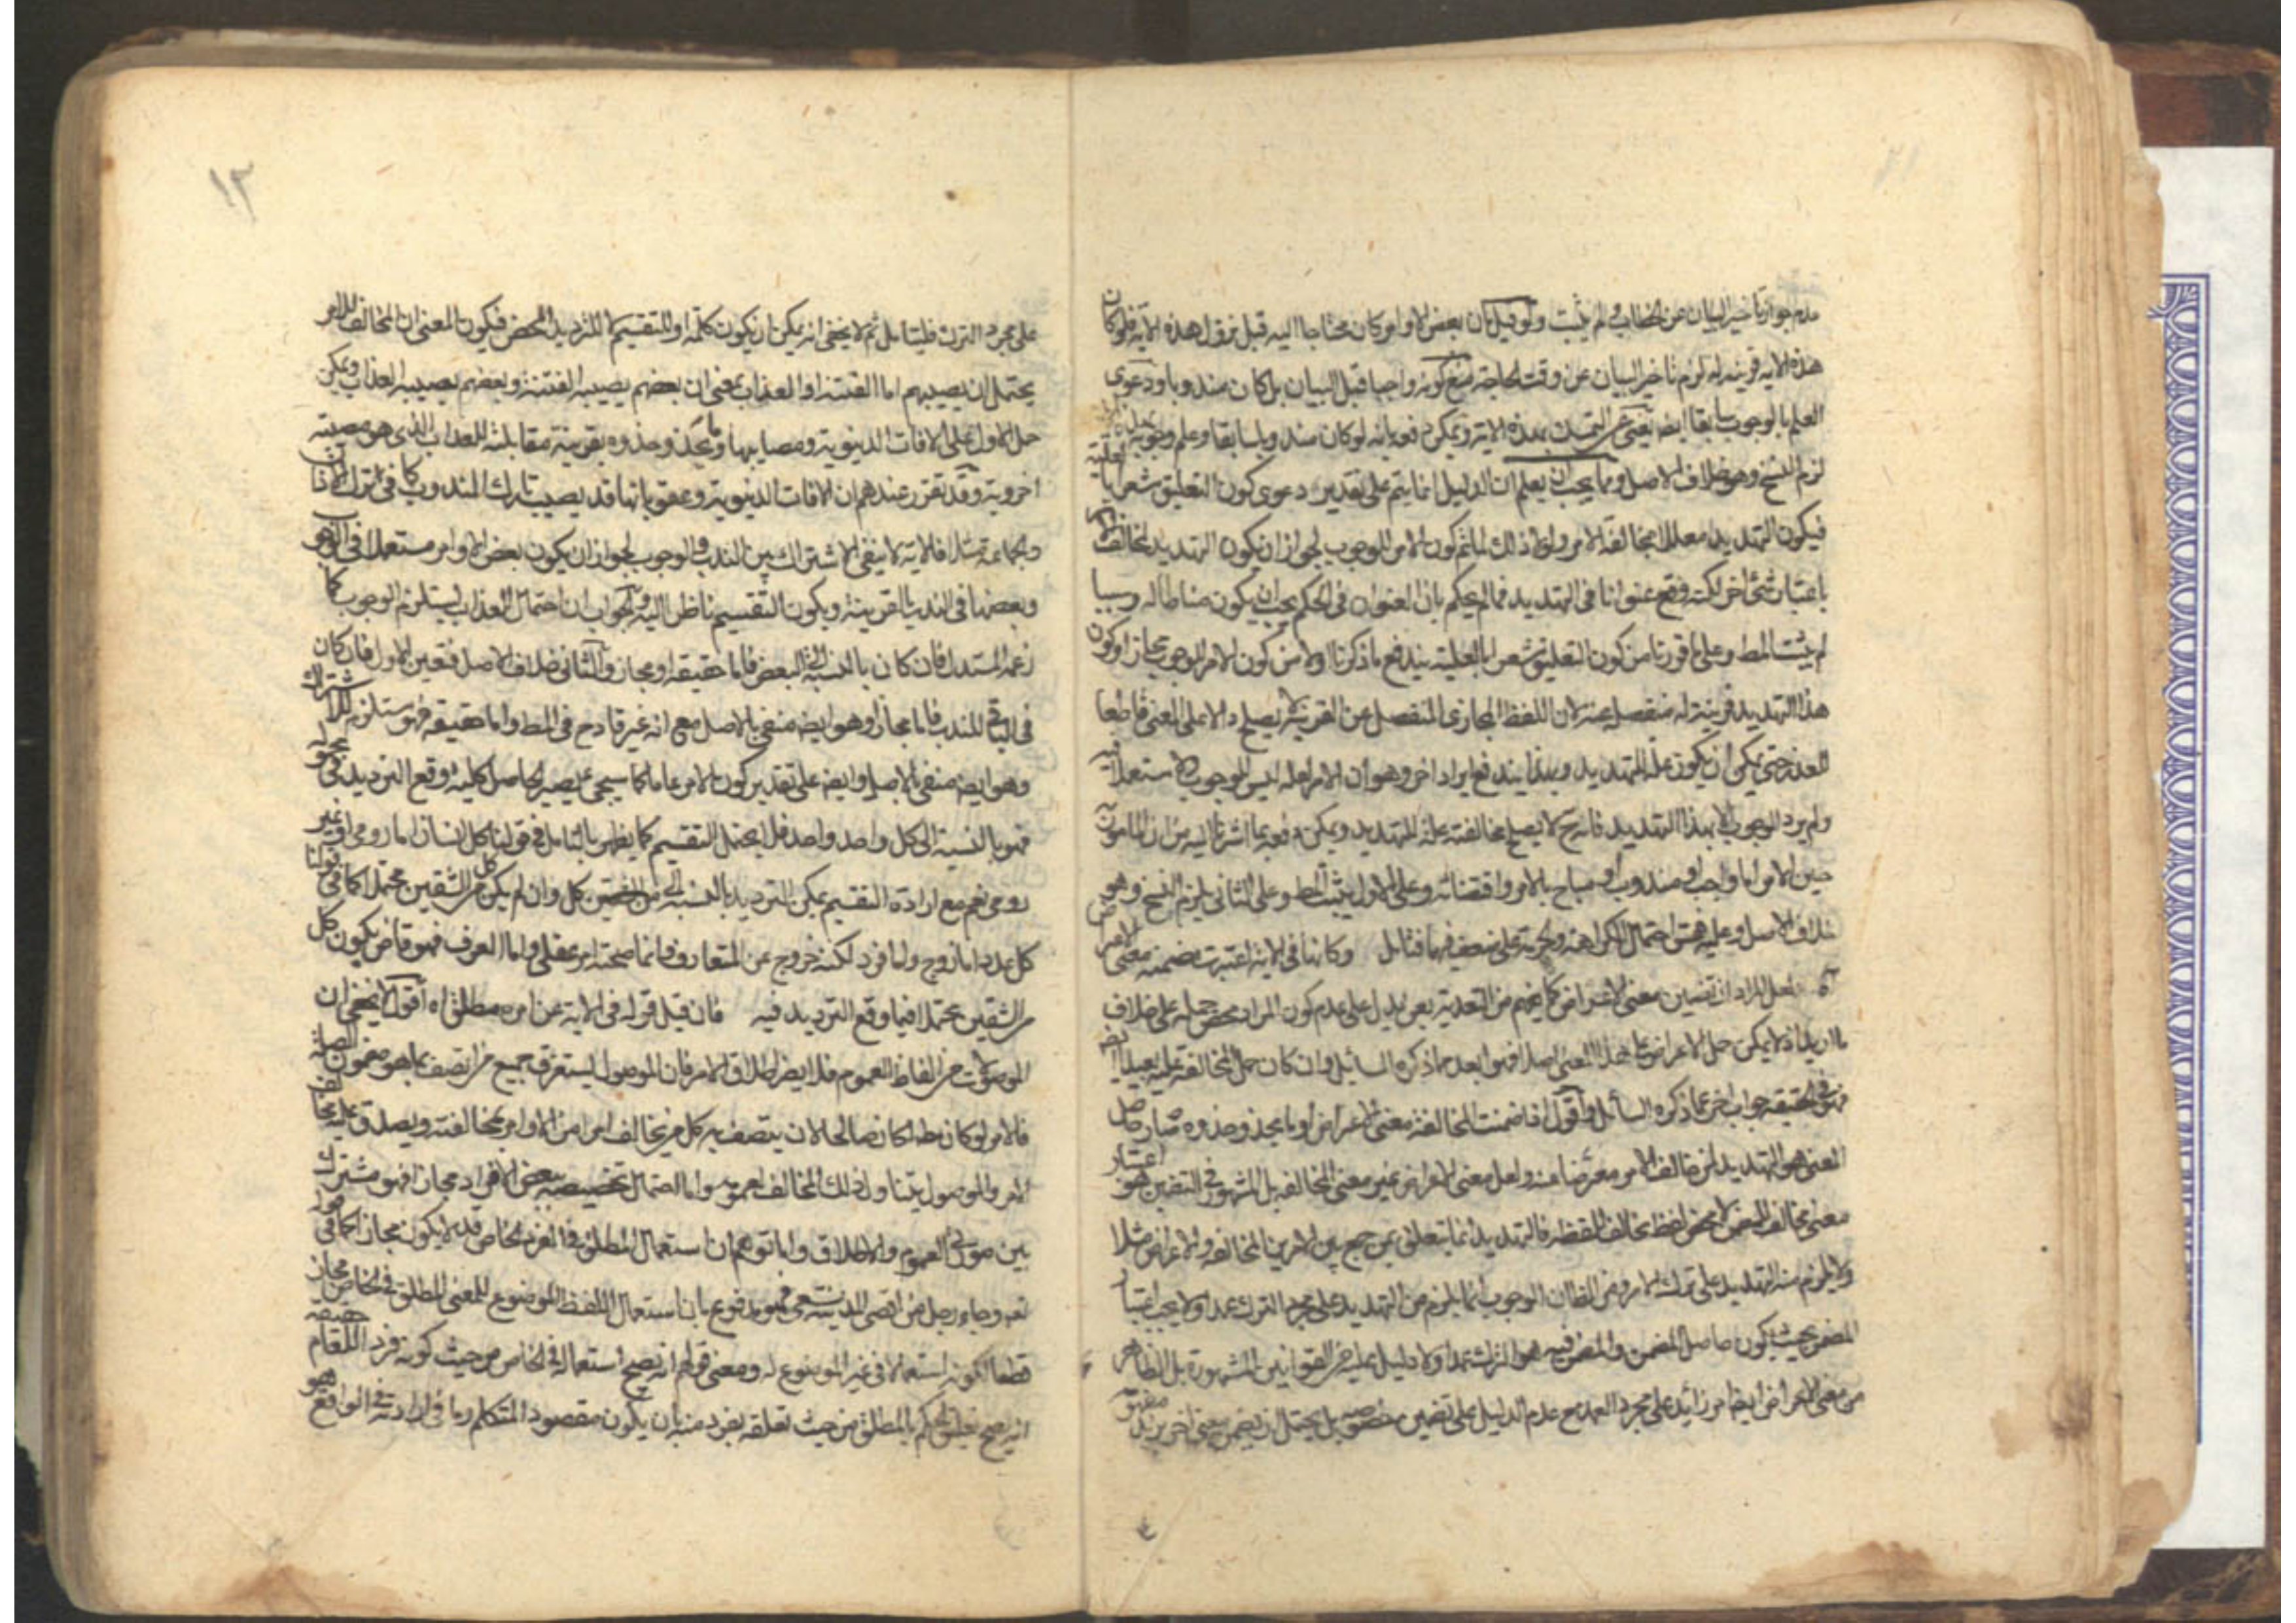 عدم جواز تأخير البيان عن الخطاب ولم يثبت ولو قيل بان بعض الاوامر كان محتاجا اليه قبل نزول هذه الآية فلو كان
هذه الاية قرينة له لزم تأخير البيان عن وقت الحاجة منع كونه واجبا قبل البيان بل كان مندوبا ودعوى
العلم بالوجوب سابقا ايضا يغنى عن التمسك بهذه الاية ويمكن دفعه بانه لو كان مندوبا سابقا وعلم وجوبه
لزم النسخ وهو خلاف الاصل ومما يجب ان يعلم ان الدليل انما يتم على تقدير دعوى كون التعليق مشعرا بالعلية
فيكون التهديد معللا بمخالفة الامر ولولا ذلك لم يتم كون الامر للوجوب لجواز ان يكون التهديد لمخالف الامر
باعتبار شئ اخر لكنه وقع عنوانا فى التهديد فما لم يحكم بان العنوان فى الحكم يجب ان يكون مناطا له وسببا
لم يثبت المط وعلى ما قررنا من كون التعليق مشعرا بالعلية يندفع ما ذكرنا اولا من كون الامر للوجوب مجازا وكون
هذا التهديد قرينة له منفصلة عنه لان اللفظ المجازى المنفصل عن القرينة لا يصلح دالا على المعنى قاطعا
للعذر حتى يمكن ان يكون علة للتهديد وبهذا يندفع ايراد اخر وهو ان الامر لعله ليس للوجوب لاستعماله فيه
ولم يرد الوجوب الا بهذا التهديد فانه ح لا يصلح مخالفته علة للتهديد ويمكن دفعه بما اشرنا اليه من ان المامور به
حين الامر اما واجب او مندوب او مباح بالامر واقتضائه وعلى الاول يثبت المط وعلى الثانى يلزم النسخ وهو
خلاف الاصل وعليه فقس احتمال الكراهة والحرمة على ضعف فيهما فتامل وكانها فى الاية اعتبرت متضمنة معنى الاعراض
آه لعل المراد ان تضمين معنى الاعراض كما يفهم من التعدية بعن يدل على عدم كون المراد محض حمله على خلاف
ما اريد اذ لا يمكن حمل الاعراض على هذا المعنى اصلا فهو ابعد مما ذكره السائل وان كان حمل المخالفة عليه بعيدا ايضا
فهو فى الحقيقة جواب اخر عما ذكره السائل واقول اذا ضمنت المخالفة معنى الاعراض او ما يحذو حذوه صار حاصل
المعنى هو التهديد لمن خالف الامر معرضا عنه ولعل معنى الاعراض غير معنى المخالفة بل المشهور فى التضمين هو اعتبار
معنى مخالف للمضمن لا محض لفظ مخالف للفظه فالتهديد انما يتعلق بمن جمع بين الامرين المخالفة والاعراض مثلا
ولا يلزم منه التهديد على ترك الامر ومن الظان الوجوب انما يلزم من التهديد على مجرد الترك عمدا ولا يجب اعتبار
المضمن بحيث يكون حاصل المضمن والمضمن فيه هو الترك عمدا ولا دليل عليه من القوانين المشهورة بل الظاهر
من معنى الاعراض ايضا امر زائد على مجرد العمد مع عدم الدليل على تضمين مخصوصه بل يحتمل ان يضمن معنى اخر يزيد مفهومه
١٣
على مجرد الترك فليتامل ثم لا يخفى انه يمكن ان يكون كلمة او للتقسيم لا للترديد المحض فيكون المعنى ان المخالف للامر
يحتمل ان يصيبهم اما الفتنة او العذاب بمعنى ان بعضهم يصيبه الفتنة وبعضهم يصيبه العذاب ويمكن
حمل الاول على الافات الدنيوية ومصايبها وما يحذو حذوه بقرينة مقابلته للعذاب الذى هو مصيبته
اخروية وقد تقرر عندهم ان الافات الدنيوية وعقوباتها قد يصيب تارك المندوب كما فى ترك الاذان
والجماعة مثلا فالاية لا ينفى الاشتراك بين الندب والوجوب لجواز ان يكون بعض الاوامر مستعملا فى الوجوب
وبعضها فى الندب بالقرينة ويكون التقسيم ناظرا اليه والجواب ان احتمال العذاب يستلزم الوجوب كما
زعمه المستدل فان كان بالنسبة الى البعض فاما حقيقة او مجاز والثانى خلاف الاصل فتعين الاول فان كان
فى الباقى للندب فاما مجاز وهو ايضا منفى بالاصل مع انه غير قادح فى المط واما حقيقة فهو مستلزم للاشتراك
وهو ايضا منفى بالاصل وايضا على تقدير كون الامر عاما كما سيجئ يصير الحاصل كلية وقع الترديد فى محمولها
فهو بالنسبة الى كل واحد واحد فلا يحتمل التقسيم كما يظهر بالتامل فى قولنا كل انسان اما رومى او غير
رومى نعم مع ارادة التقسيم يمكن الترديد بالنسبة الى كل وان لم يكن كل من الشقين محتملا كما فى قولنا
كل عدد اما زوج واما فرد لكنه خروج عن المتعارف وانما صحته امر عقلى واما العرف فهو قاض بكون كل
من الشقين محتملا فيما وقع الترديد فيه فان قيل قوله فى الاية عن امره مطلق اه اقول لا يخفى ان
الموصولات من الفاظ العموم فلا يضر اطلاق الامر فان الموصول يستغرق جميع من اتصف بما هو مضمون الصلة
فالامر لو كان مطلقا كان صالحا لان يتصف به كل من يخالف امرا من الاوامر بمخالفته ويصدق عليه مخالف
الامر والموصول يتناول ذلك المخالف لعمومه واما احتمال تخصيصه ببعض الافراد مجازا فهو مشترك
بين صورتى العموم والاطلاق واما توهم ان استعمال المطلق فى الفرد الخاص قد لا يكون مجازا كما فى قوله
تعه وجاء رجل من اقصى المدينة يسعى فهو مدفوع بان استعمال اللفظ الموضوع للمعنى المطلق فى الخاص مجاز
قطعا لكونه استعمالا فى غير الموضوع له ومعنى قولهم انه يصح استعماله فى الخاص من حيث كونه فردا للمقام حقيقة
انه يصح تعلق الحكم بالمطلق من حيث تعلقه بفرد منه بان يكون مقصود المتكلم وما اراد به فى الواقع هو